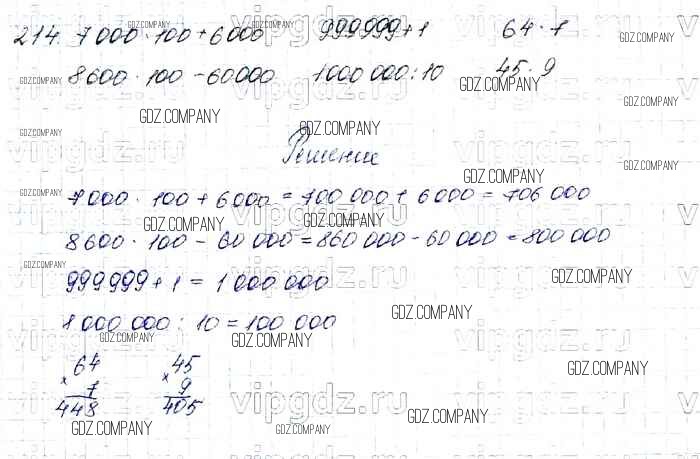 214. 7000·100+6000 999999+1 64·7
8600·100-60000 1000000:10 45·9
Решение
7000·100+6000=700 000+6000=706 000
8600·100-60 000=860 000-60 000=800 000
999999+1=1 000 000
1 000 000:10=100 000
64 45
× 7 × 9
448 405
GDZ.COMPANY
vipgdz.ru